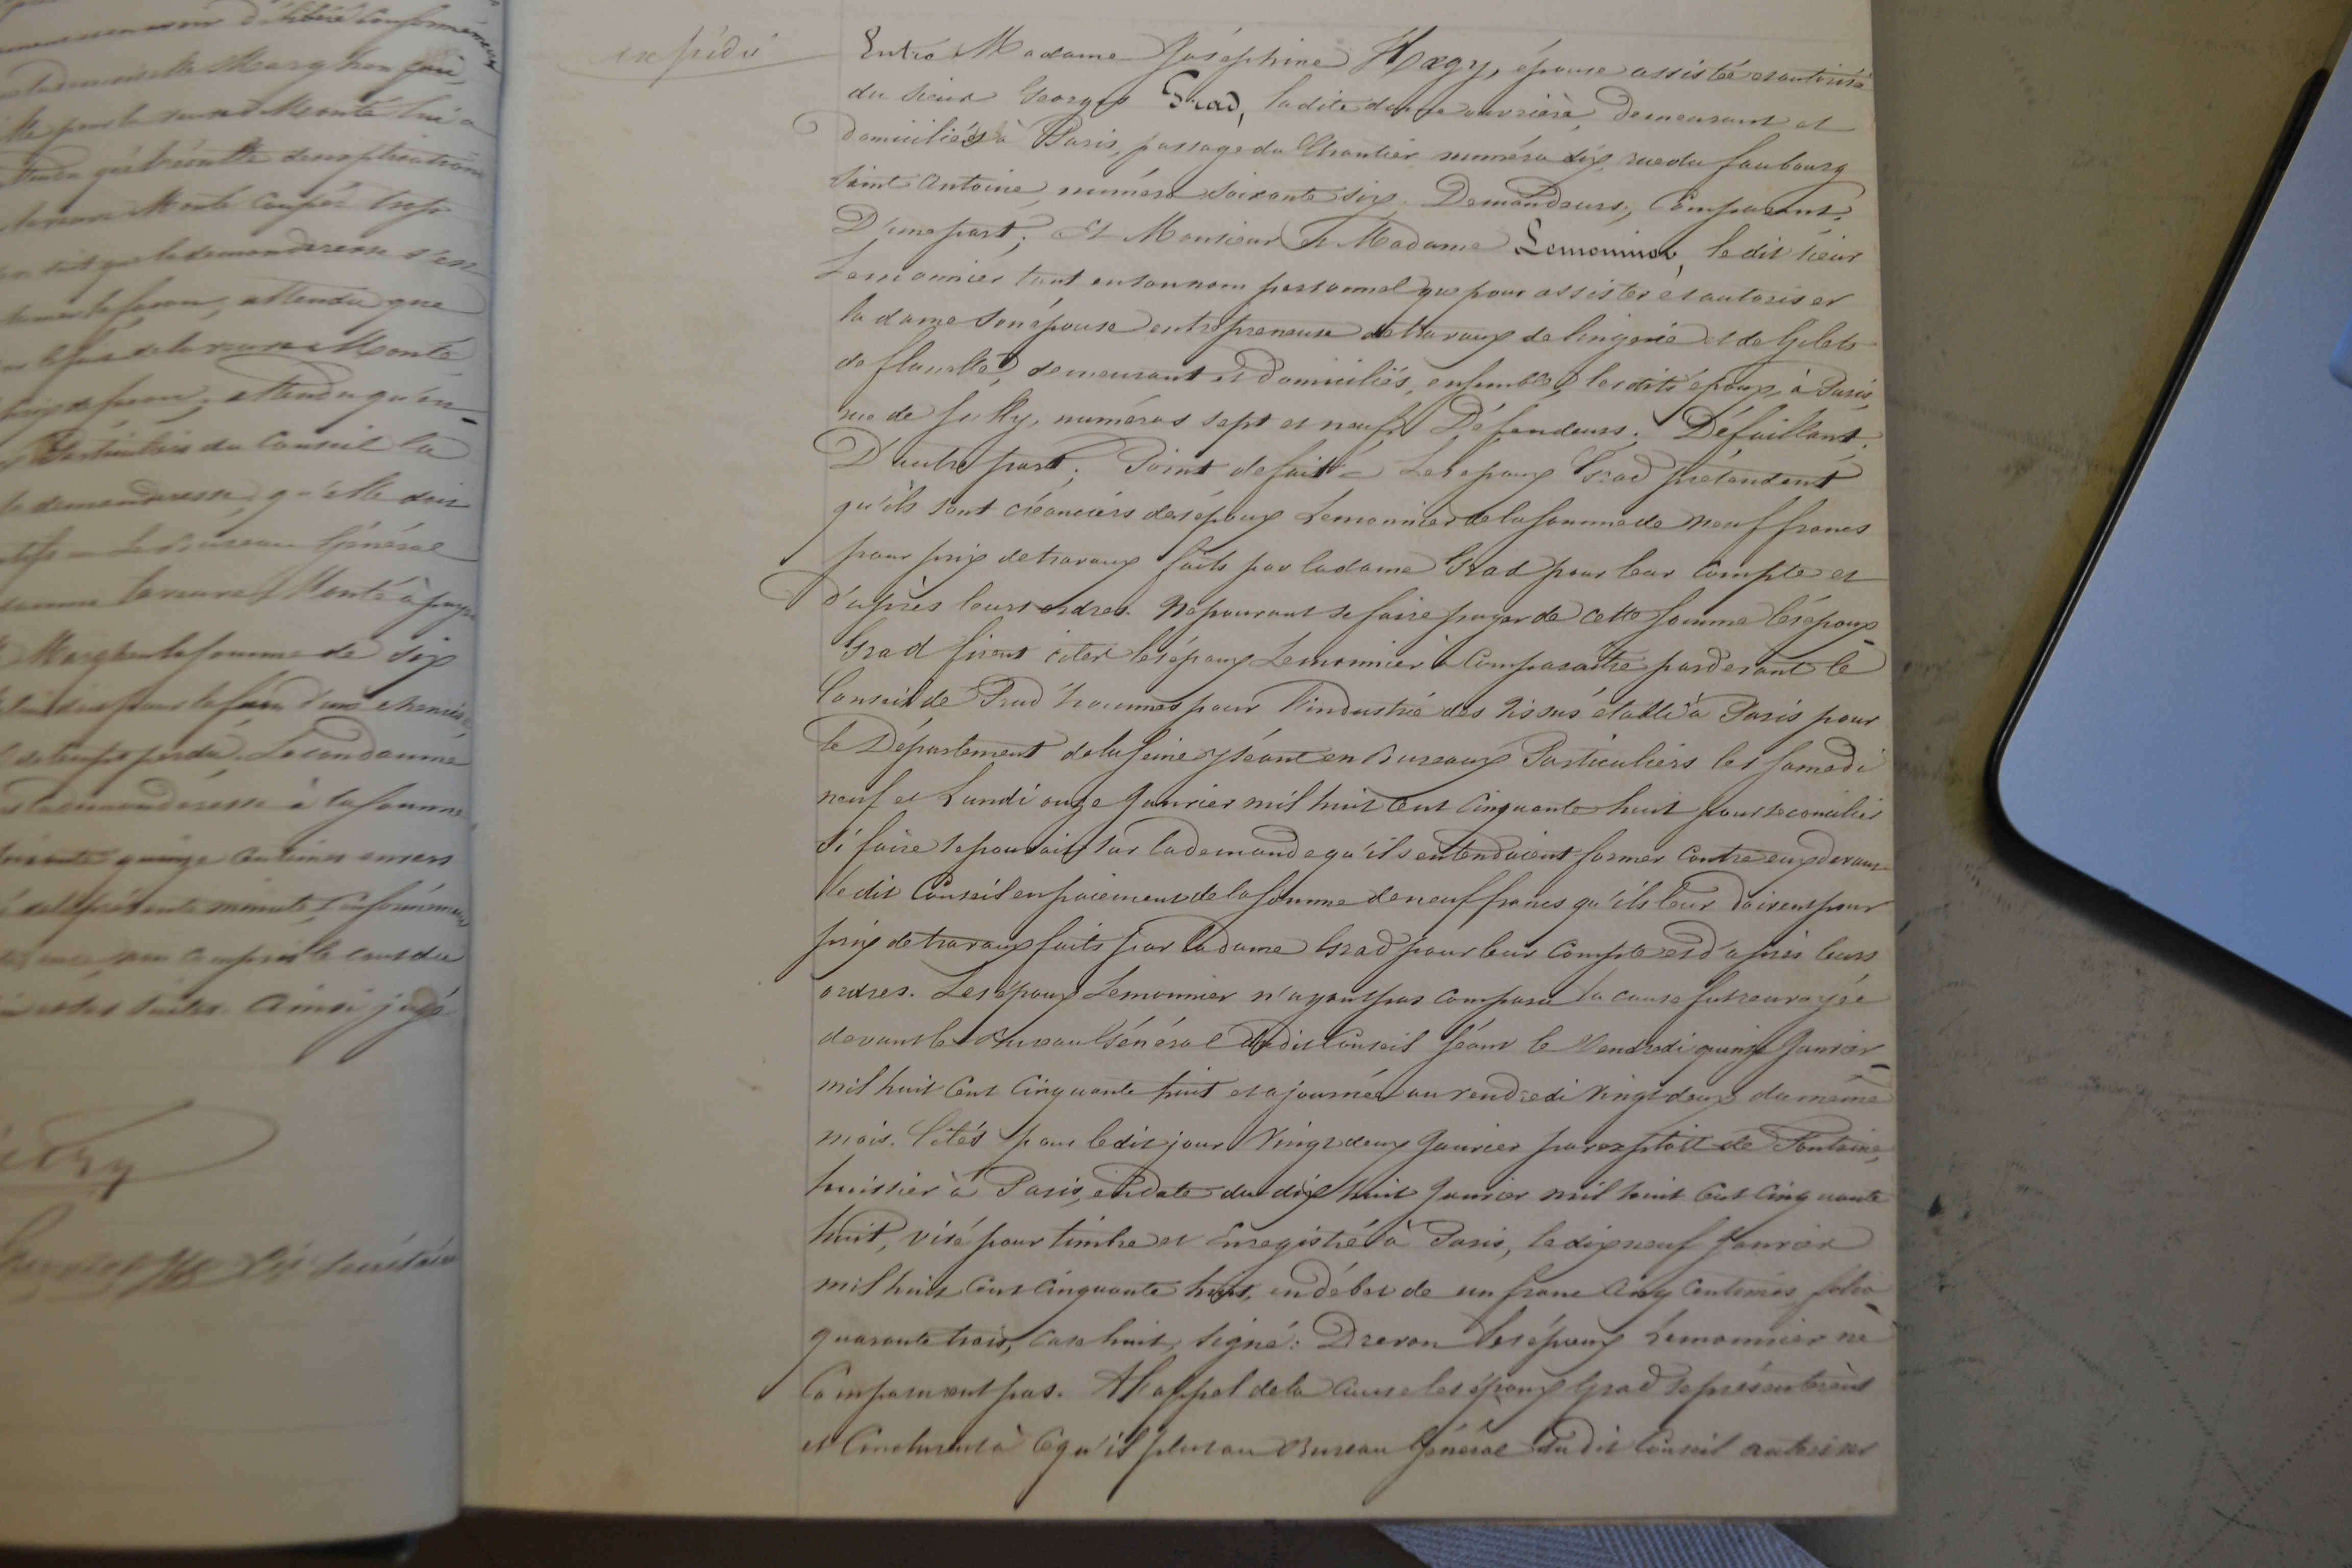 conformément
Marghen
la veuve Monté lui a
qu'il résulte des explications
Monté
que la demanderesse s'en
la façon, attendu que
de la veuve Monté
prix de façon; attendu qu'en
Particulier du Conseil la
la demanderesse, qu'elle doit
Le Bureau Général
la veuve Monté à payer
Marghen la somme de six
pour la façon d'une chemise,
de temps perdu. La condamne
la demanderesse à la somme
soixante quinze centimes envers
de la présente minute, conformément
non compris le coût du
et ses suites. Ainsi jugé
secrétaire
expédié
Entre Madame Joséphine Hægy, épouse assistée et autorisée
du sieur Georges Grad, la dite dame ouvrière, demeurant et
domiciliés à Paris, passage du Chantier numéro dix, rue du faubourg
Saint Antoine, numéro soixante six. Demandeurs, Comparant.
D'une part; Et Monsieur et Madame Lemonnier, le dit sieur
Lemonnier tant en son nom personnel que pour assister et autoriser
la dame son épouse entrepreneuse de travaux de lingerie et de Gilets
de flanelle, demeurant et domiciliés, ensemble, les dits époux, à Paris,
rue de Jully, numéros sept et neuf. Défendeurs. Défaillant.
D'autre part; Point de fait = Les époux Grad prétendent
qu'ils sont créanciers des époux Lemonnier de la somme de neuf francs
pour prix de travaux faits par la dame Grad pour leur compte et
d'après leurs ordres. Ne pouvant se faire payer de cette somme les époux
Grad firent citer les époux Lemonnier à comparaître par devant le
Conseil de Prud'hommes pour l'industrie des Tissus établi à Paris pour
le Département de la Seine y séant en Bureaux Particuliers les Samedi
neuf et Lundi onze Janvier mil huit cent cinquante huit pour se concilier
si faire se pouvait sur la demande qu'ils entendaient former contre eux devant
le dit Conseil en paiement de la somme de neuf francs qu'ils leur doivent pour
prix de travaux faits par la dame Grad pour leur compte et d'après leurs
ordres. Les époux Lemonnier n'ayant pas comparu la cause fut renvoyée
devant le Bureau Général du dit Conseil séant le Vendredi quinze Janvier
mil huit cent cinquante huit et ajournée au vendredi vingt deux du même
mois. Cités pour le dit jour Vingt deux Janvier par exploit de Fontaine,
huissier à Paris, en date du dix huit Janvier mil huit cent cinquante
huit, visé pour timbre et Enregistré à Paris, le dix neuf Janvier
mil huit cent cinquante huit, en débet de un franc cinq centimes, folio
quarante trois, case huit, signé: Les époux Lemonnier ne
Comparurent pas. A l'appel de la cause les époux Grad se présentèrent
et Conclurent à ce qu'il plut au Bureau Général du dit Conseil autoriser